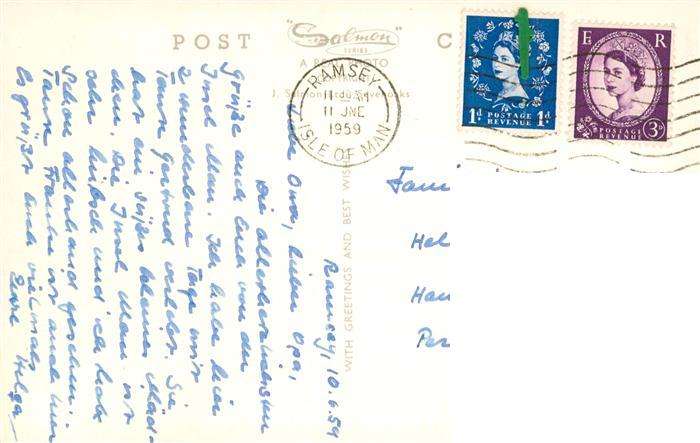 POST C
"Salmon"
SERIES
A PHOTO
J. Salmon Ltd., Sevenoaks
WITH GREETINGS AND BEST WISHES
RAMSEY
11 JNE
1959
ISLE OF MAN
1d POSTAGE REVENUE 1d
E R
POSTAGE REVENUE 3d
Ramsey, 10.6.59
Liebe Oma, lieber Opa,
Die allerherzlichsten
Grüße auch Euch von der
Insel Man. Ich habe hier
2 wunderbare Tage mit
Tante Gertrud verlebt. Sie
hat ein süßes kleines Mäd-
chen. Die Insel Man ist
sehr hübsch und ich habe
schon allerhand gesehen.
Tante Frauke ist auch hier
Es grüßt Euch vielmals
Eure Helga
Fami
Hel
Han
Per